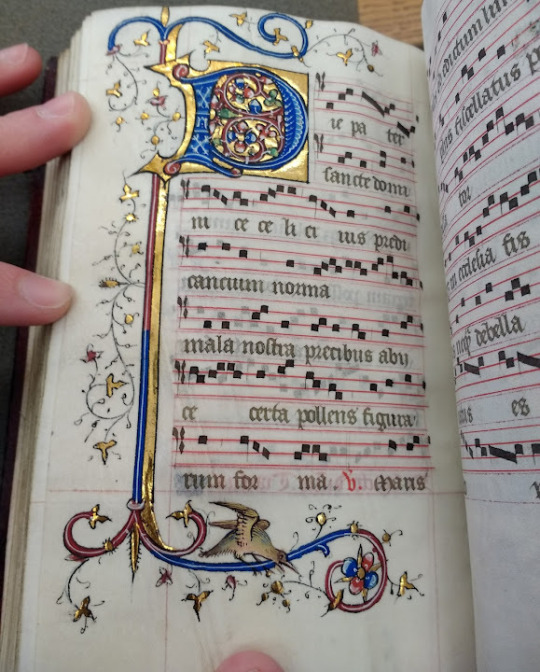 Pie pa ter
sancte domi
ni ce ce li ci iuris predi
cancium norma
mala nostra precibus abi
ce certa pollens figura
rum for ma V. Maris
fiscellatus
tor
ecclesia sis
debella
es